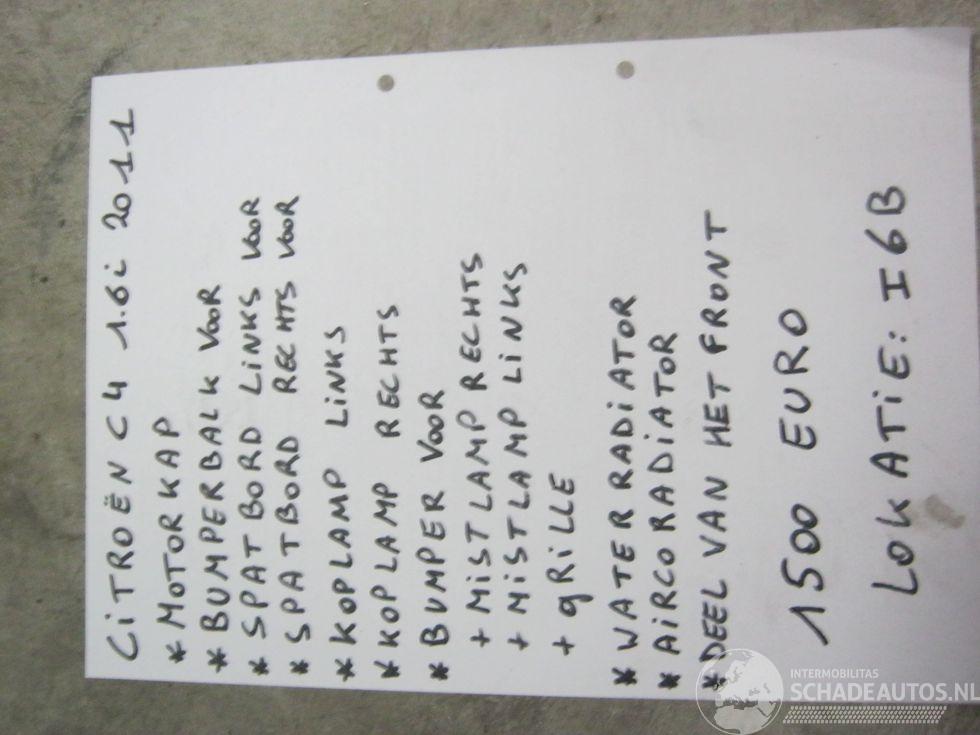 CiTROËN C4 1.6i 2011
* MOTORKAP
* BUMPERBALK VOOR
* SPATBORD LiNKS VOOR
* SPATBORD RECHTS VOOR
* KOPLAMP LiNKS
* KOPLAMP RECHTS
* BUMPER VOOR
+ MiSTLAMP RECHTS
+ MiSTLAMP LiNKS
+ gRiLLE
* WATERRADiATOR
* AiRCORADiATOR
* DEEL VAN HET FRONT
1500 EURO
LOKATiE: I6B
INTERMOBILITAS
SCHADEAUTOS.NL